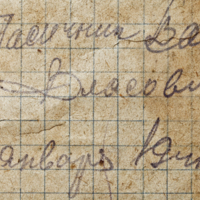 Пасечник Ва
Власови
январь